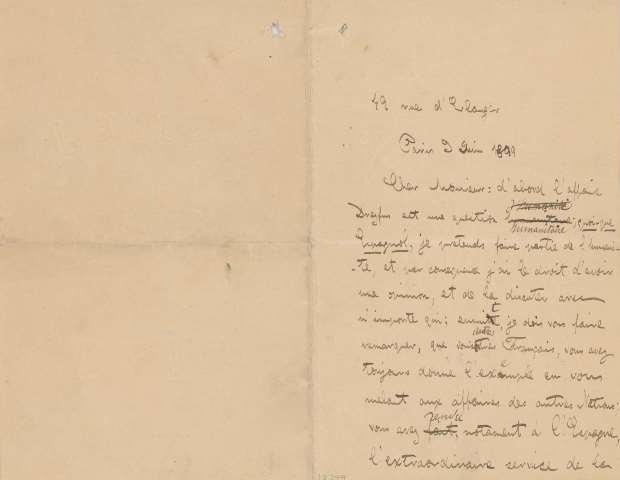 49 rue d'Erlanger
Paris 9 Juin 1899
Cher Monsieur: d'abord l'affaire
Dreyfus est une question humanitaire; quoique
Espagnol, je pretends faire partie de l'humani-
té, et par consequence j'ai le droit d'avoir
une opinion, et de la discuter avec
n'importe qui: ensuite, je dois vous faire
remarquer, que vous autres Français, vous avez
toujours donné l'exemple en vous
mêlant aux affaires des autres Nations:
vous avez rendu, notament à l'Espagne,
l'extraordinaire service de la
18244